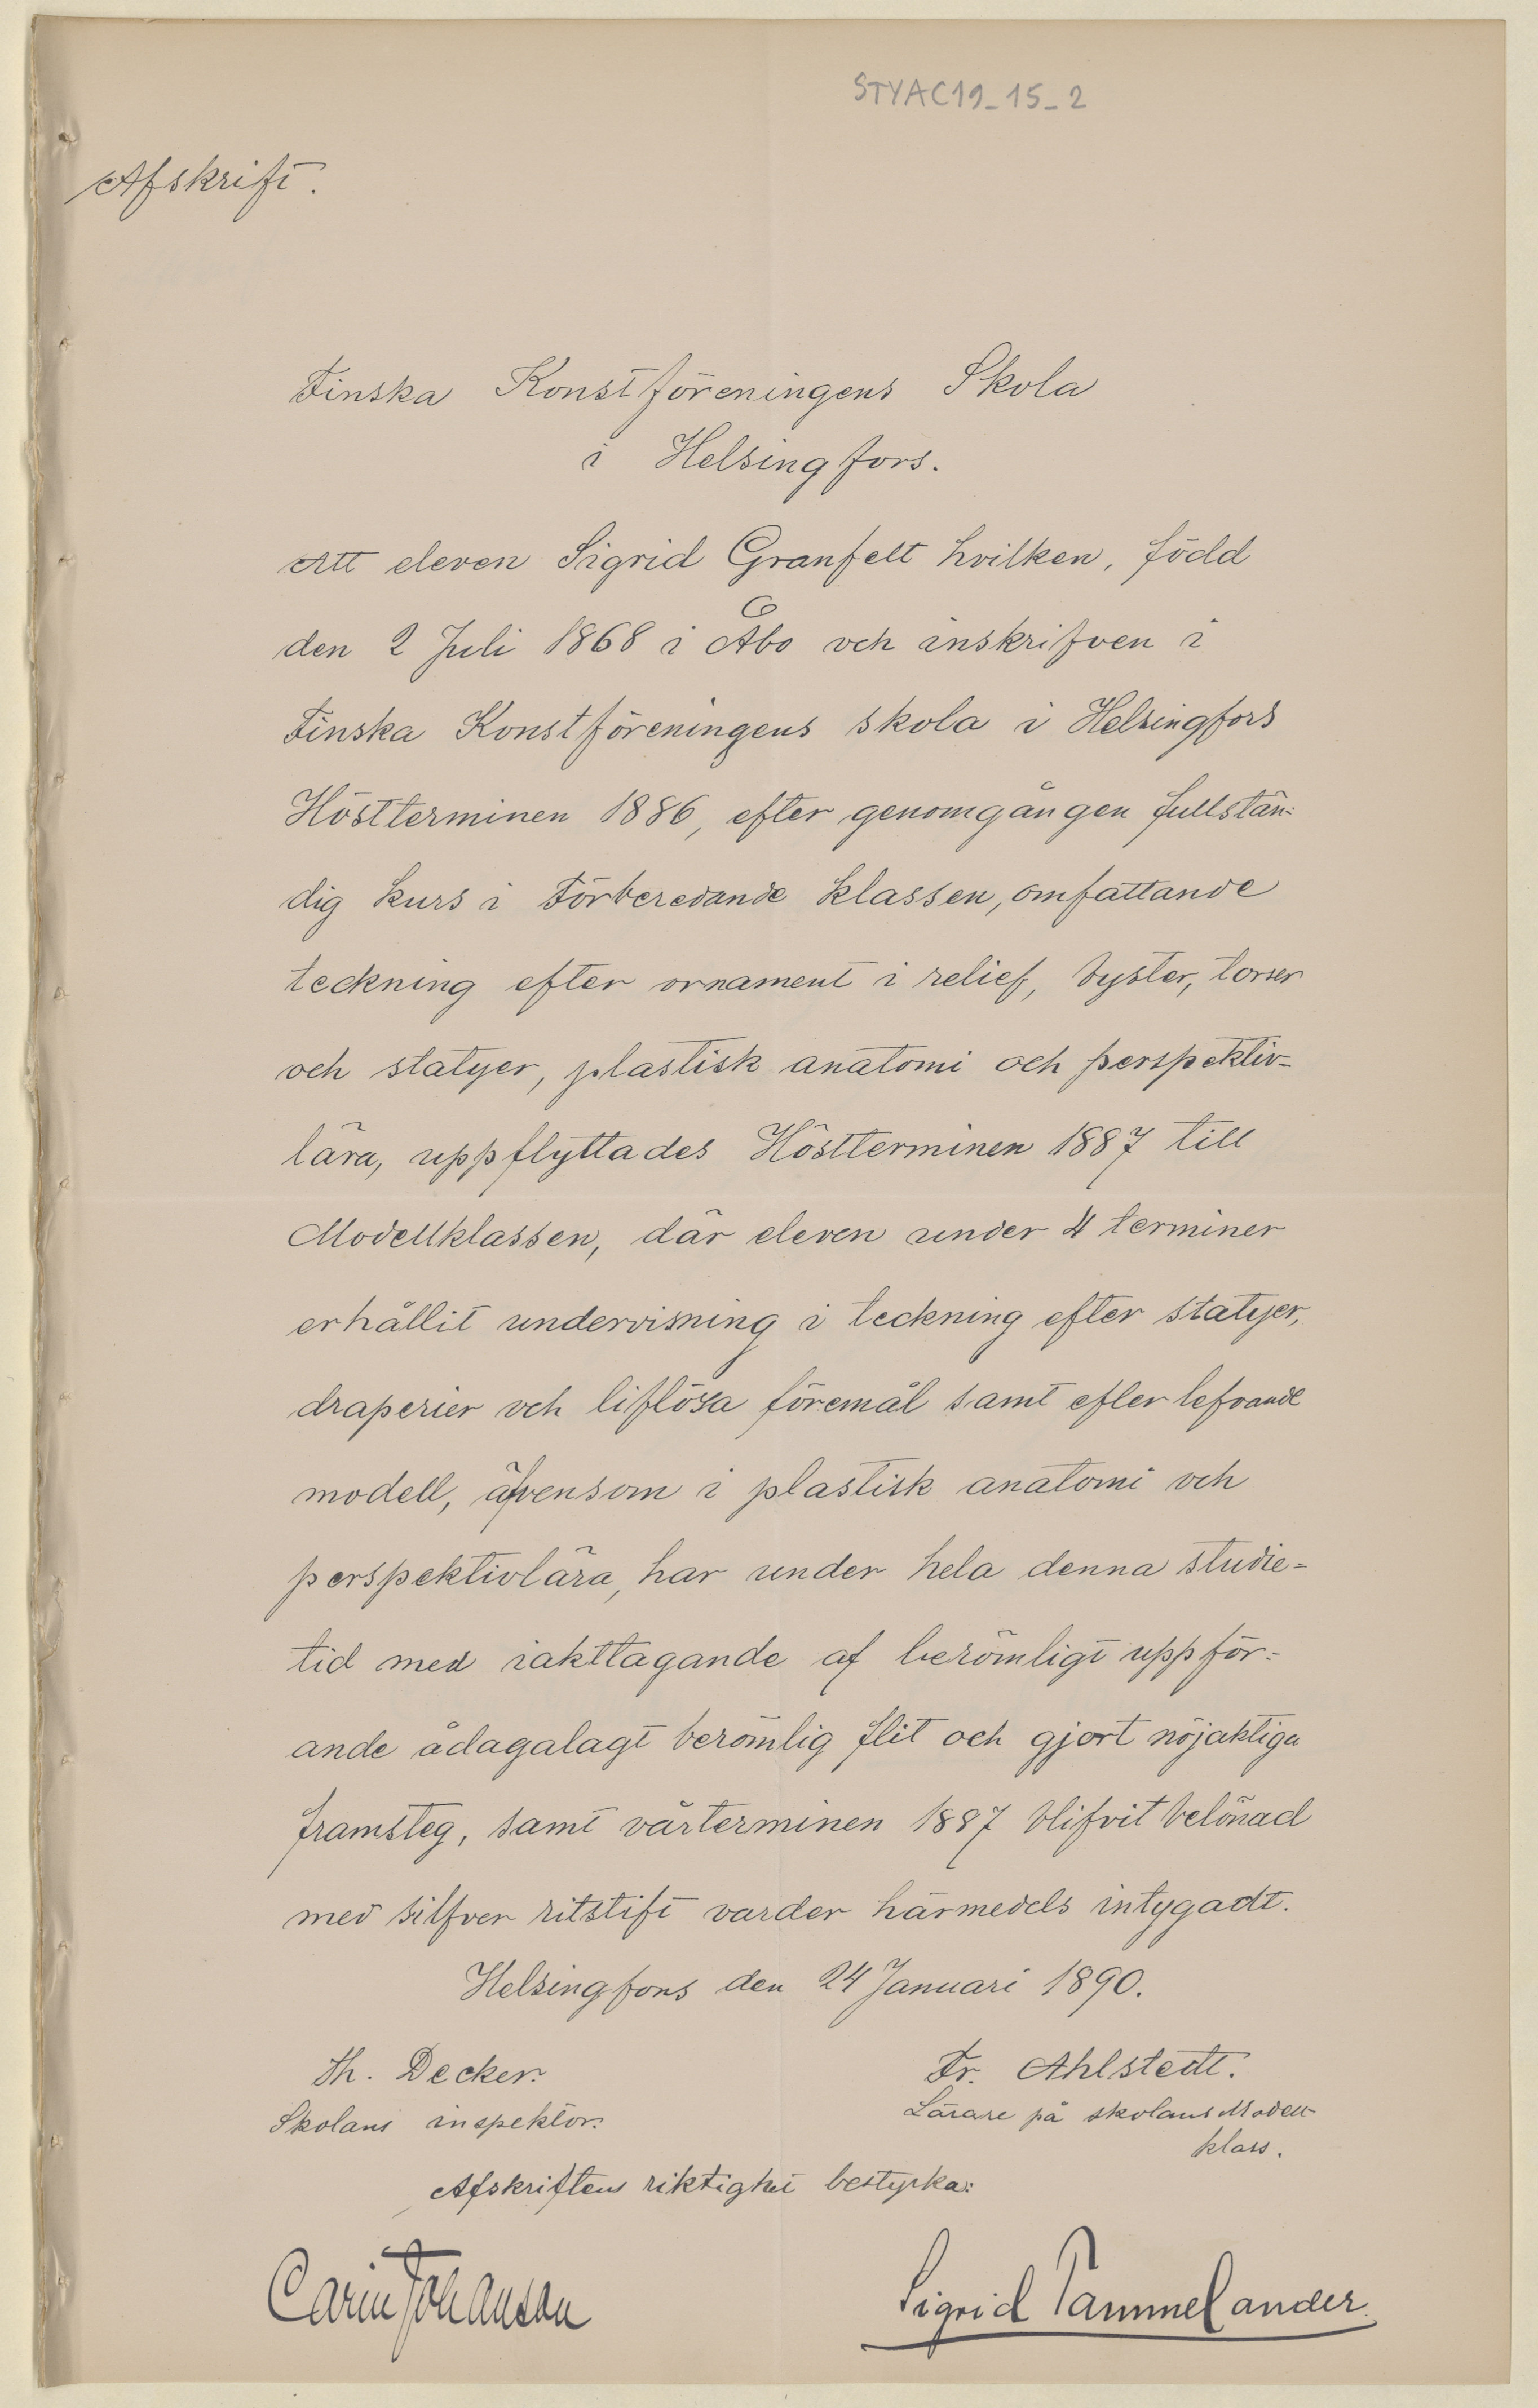 STYAC19_15_2
Afskrift.
Finska Konstföreningens Skola
i Helsingfors.
Att eleven Sigrid Granfelt hvilken, född
den 2 Juli 1868 i Åbo och inskrifven i
Finska Konstföreningens skola i Helsingfors
Höstterminen 1886, efter genomgången fullstän-
dig kurs i Förberedande klassen, omfattande
teckning efter ornament i relief, byster, torser
och statyer, plastisk anatomi och perspektiv-
lära, uppflyttades Höstterminen 1887 till
Modellklassen, där eleven under 4 terminer
erhållit undervisning i teckning efter statyer,
draperier och liflösa föremål samt efter lefvande
modell, äfvensom i plastisk anatomi och
perspektivlära, har under hela denna studie-
tid med iakttagande af berömligt uppför-
ande ådagalagt berömlig flit och gjort nöjaktiga
framsteg, samt vårterminen 1887 blifvit belönad
med silfver ritstift varder härmedels intygadt.
Helsingfors den 24 Januari 1890.
Th. Decker. Fr. Ahlstedt.
Skolans inspektor. Lärare på skolans Modell-
klass.
Afskriftens riktighet bestyrka:
Carin Johanson Sigrid Tammelander